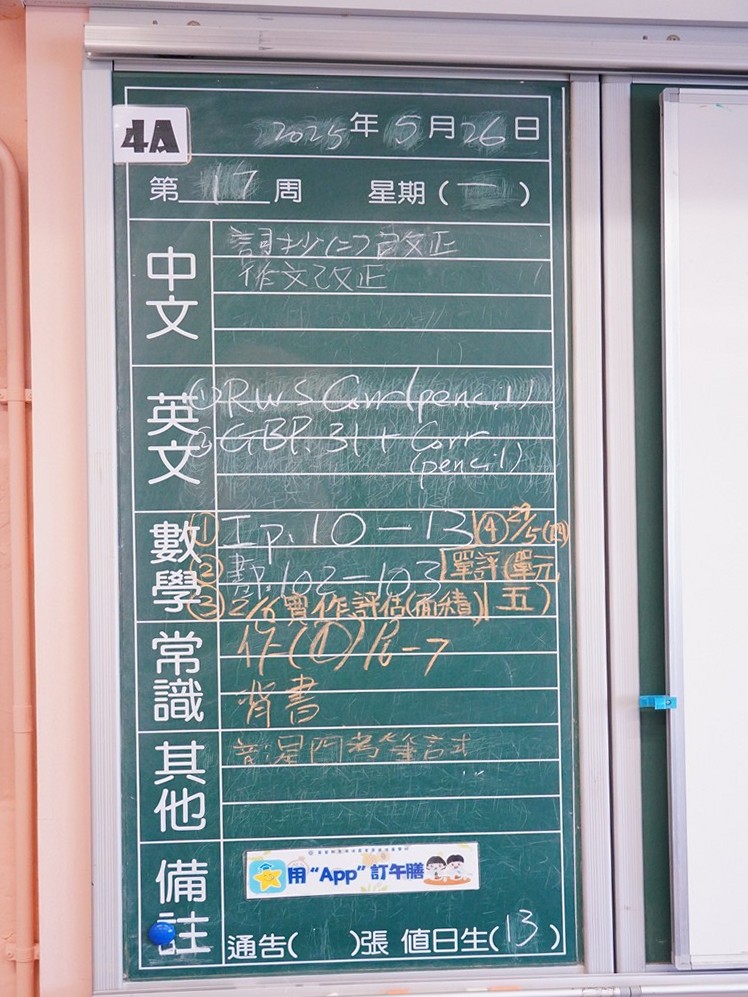 4A
2025年5月26日
第17周 星期(一)
中文
詞抄(二)改正
作文改正
英文
① RWS Corr (pencil)
② GBP. 31 + Corr
(pencil)
數學
① Ip. 10 – 13 ④ 29/5(四)
② 書P. 102 – 103 單評(單元
③ 2/6 實作評估(面積) 五)
常識
作(A) P6 – 7
背書
其他
考筆試
備註
用“App”訂午膳
通告( )張 值日生(13)